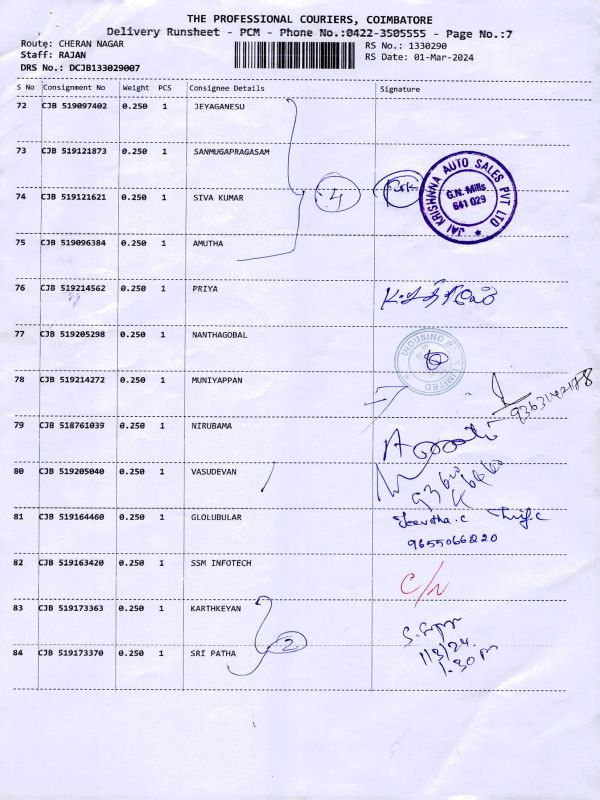 THE PROFESSIONAL COURIERS, COIMBATORE
Delivery Runsheet - PCM - Phone No.:0422-3505555 - Page No.:7
Route: CHERAN NAGAR
RS No.: 1330290
Staff: RAJAN
RS Date: 01-Mar-2024
DRS No.: DCJB133029007
S No Consignment No Weight PCS Consignee Details Signature
72 CJB 519097402 0.250 1 JEYAGANESU
73 CJB 519121873 0.250 1 SANMUGAPRAGASAM
4
JAI KRISHNNA AUTO SALES PVT LTD
G.N. Mills
641 029
74 CJB 519121621 0.250 1 SIVA KUMAR
75 CJB 519096384 0.250 1 AMUTHA
76 CJB 519214562 0.250 1 PRIYA
77 CJB 519205298 0.250 1 NANTHAGOBAL
INDUSIND
LIMITED
78 CJB 519214272 0.250 1 MUNIYAPPAN
79 CJB 518761039 0.250 1 NIRUBAMA
80 CJB 519205040 0.250 1 VASUDEVAN
81 CJB 519164460 0.250 1 GLOLUBULAR
Jeevitha.c
9655066220
82 CJB 519163420 0.250 1 SSM INFOTECH
C/N
83 CJB 519173363 0.250 1 KARTHKEYAN
2
1/3/24
1.30 pm
84 CJB 519173370 0.250 1 SRI PATHA